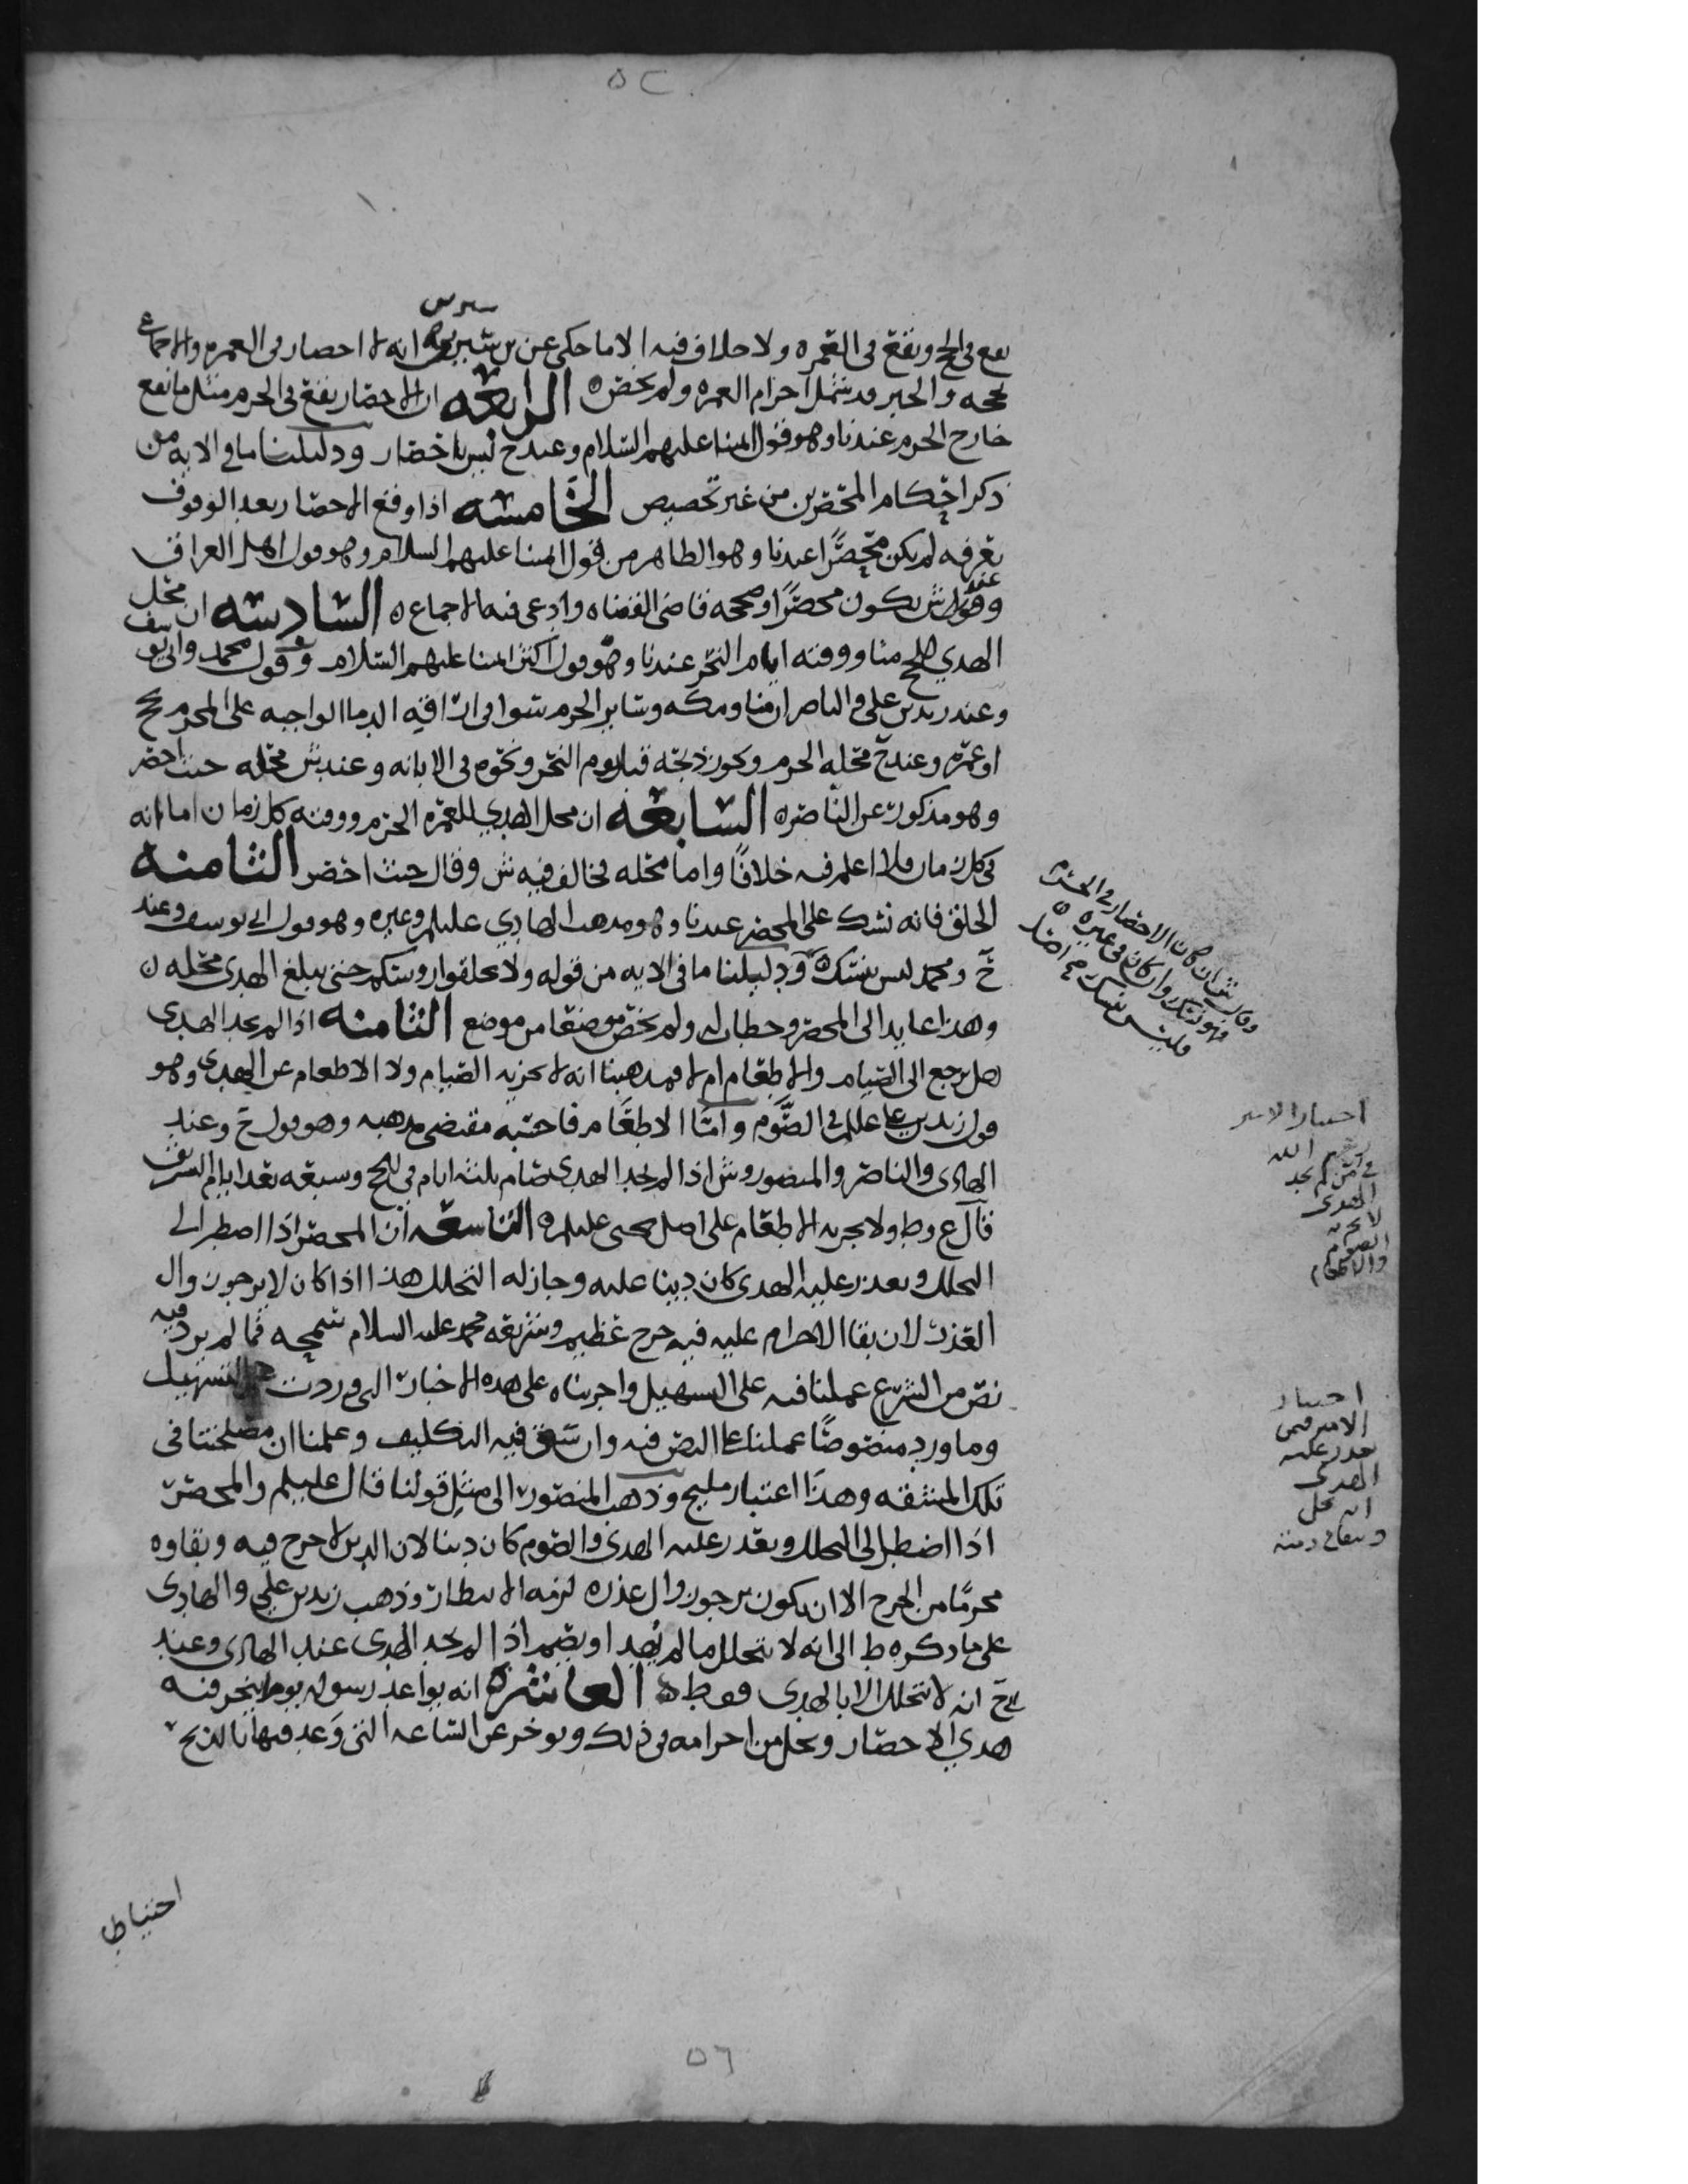 ٥٢
سيرين
يقع في الحج ويقع في العمره ولا خلاف فيه الا ما حكي عن بن سيرين انه لا احصار في العمره والاجماع
يحجه والخبر قد شمل احرام العمره ولم يخصه الرابعه ان الاحصار يقع في الحرم مثل ما يقع
خارج الحرم عندنا وهو قول ائمتنا عليهم السلام وعند ح ليس باحصار ودليلنا ما في الايه من
ذكر احكام المحصرين من غير تخصيص الخامسه اذا وقع الاحصار بعد الوقوف
بعرفه لم يكن محصرًا عندنا وهو الظاهر من قول ائمتنا عليهم السلام وهو قول اهل العراق
وعند ش يكون محصرًا وصححه قاضي القضاه وادعى فيه الاجماع ه السادسه ان محل
الهدي للحج منا ووقته ايام النحر عندنا وهو قول اكثر ائمتنا عليهم السلام وهو قول محمد وابي يوسف
وعند زيد بن علي والناصر ان منا ومكه وسائر الحرم سوا في اراقة الدما الواجبه على المحرم بحج
او عمره وعند ح محله الحرم ويجوز ذبحه قبل يوم النحر ونحوه في الابانه وعند ش محله حيث احصر
وهو مذكور عن الناصر ه السابعه ان محل الهدي للعمره الحرم ووقته كل زمان اما انه
في كل زمان فلا اعلم فيه خلافًا واما محله فخالف فيه ش وقال حيث احصر الثامنه
الحلق فانه نسك على المحصر عندنا وهو مذهب الهادي عليلم وغيره وهو قول ابي يوسف وعند
ح ومحمد ليس بنسك ه ودليلنا ما في الايه من قوله ولا تحلقوا روسكم حتى يبلغ الهدي محله ه
وهذا عايد الى المحصر وخطاب له ولم يخص موضعًا من موضع الثامنه اذا لم يجد الهدي
هل يرجع الى الصيام والاطعام ام لا فمذهبنا انه لا يجزيه الصيام ولا الاطعام عن الهدي وهو
قول زيد بن علي عليلم في الصوم واما الاطعام فاحسبه مقتضى مذهبه وهو قول ح وعند
الهادي والناصر والمنصور وش اذا لم يجد الهدي صام ثلثه ايام في الحج وسبعه بعد ايام التشريق
قال ع وط ولا يجزيه الاطعام على اصل يحيى عليلم ه التاسعه ان المحصر اذا اضطر الى
التحلل وتعذر عليه الهدي كان دينا عليه وجاز له التحلل هذا اذا كان لا يرجو زوال
العذر لان بقا الاحرام عليه فيه حرج عظيم وشريعة محمد عليه السلام سمحه فما لم يرد فيه
نص من الشرع عملنا فيه على التسهيل واجريناه على هذه الاخبار التي وردت في التسهيل
وما ورد منصوصًا عملنا على النص فيه وان شق فيه التكليف وعلمنا ان مصلحتنا في
تلك المشقه وهذا اعتبار مليح وذهب المنصور الى مثل قولنا قال عليلم والمحصر
اذا اضطر الى التحلل وتعذر عليه الهدي والصوم كان دينا لان الدين لا حرج فيه وبقاوه
محرمًا من الحرج الا ان يكون يرجو زوال عذره لزمه الانتظار وذهب زيد بن علي والهادي
على ما ذكره ط الى انه لا يتحلل ما لم يهد او يصم اذا لم يجد الهدي عند الهادي وعند
ح انه لا يتحلل الا بالهدي فقط ه العاشره انه يواعد رسوله يوما ينحر فيه
هدي الاحصار ويحل من احرامه في ذلك ويوخر عن الساعه التي وعد فيها بالذبح
احتياطا
وقال ش ان كان الاحصار في الحرم
فهو نسك وان كان في غيره
فليس بنسك
اختيار الامير
رحمه الله
في من لم يجد
الهدى
لا يجزيه
الصوم
والاطعام
اختيار
الامير فيمن
تعذر عليه
الهدى
انه يحل
ويبقا في ذمته
٥٦